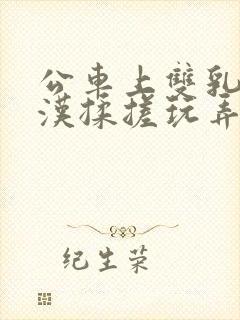 公車上雙乳
漢揉搓玩弄
纪生荣